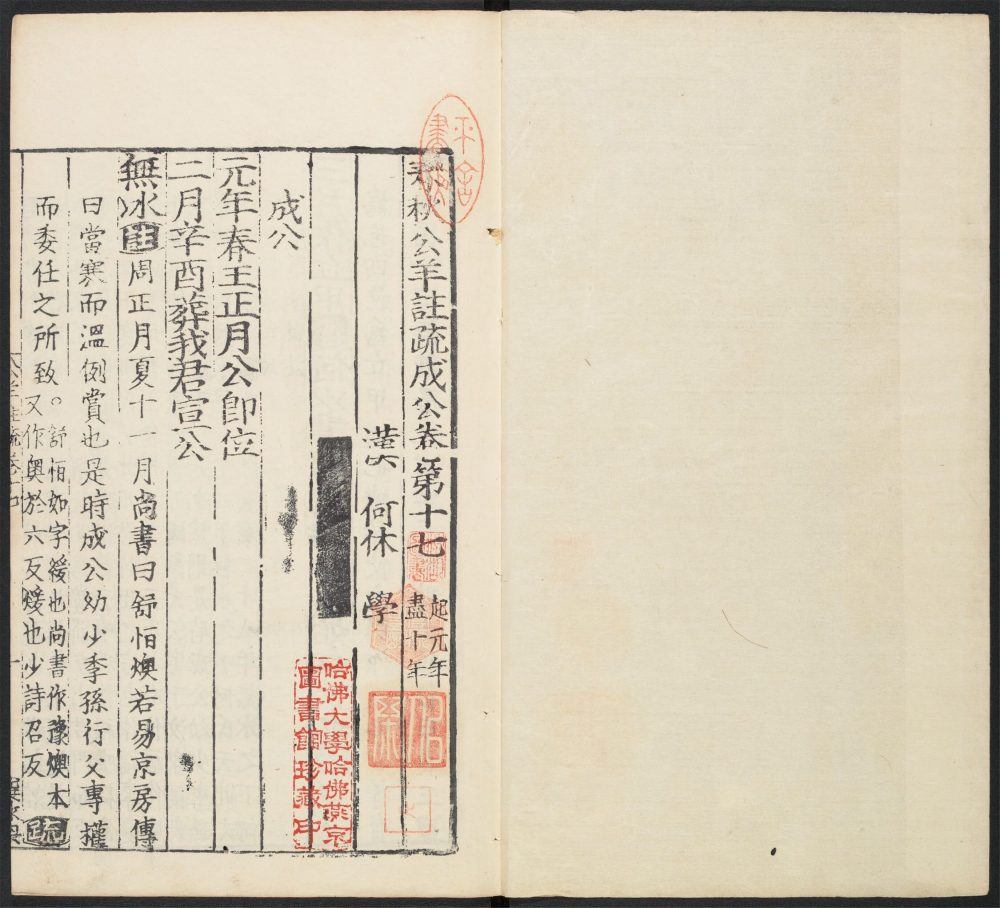 春秋公羊註疏成公卷第十七 起元年
盡十年
漢 何休 學
成公
元年春王正月公卽位
二月辛酉葬我君宣公
無冰註周正月夏十一月尚書曰舒恒燠若易京房傳
曰當寒而溫倒賞也是時成公幼少季孫行父專權
而委任之所致。舒恒如字緩也尚書作豫燠本
又作奧於六反煖也少詩召反疏
哈佛大學哈佛燕京
圖書館珍藏印